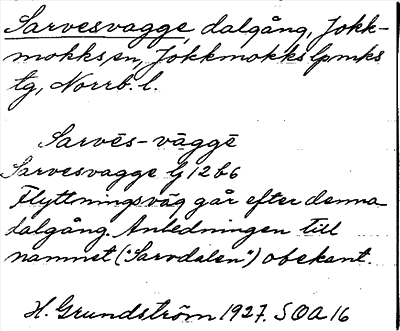 Sarvesvagge, dalgång, Jokk-
mokks sn, Jokkmokks lpmks
tg, Norrb. l.
Sarvēs-vāggē
Sarvesvagge G 12 b 6
Flyttningsväg går efter denna
dalgång. Anledningen till
namnet ("Sarvdalen") obekant.
H. Grundström 1927. SOA 16